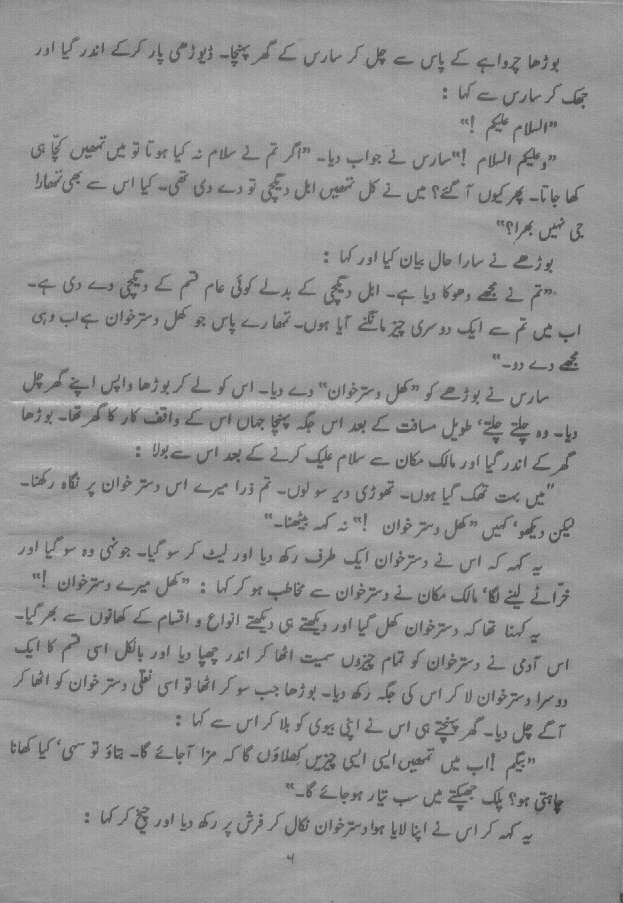 بوڑھا چرواہے کے پاس سے چل کر سارس کے گھر پہنچا۔ ڈیوڑھی پار کرکے اندر گیا اور
جھک کر سارس سے کہا :
”السلام علیکم !“
”وعلیکم السلام !“ سارس نے جواب دیا۔ ”اگر تم نے سلام نہ کیا ہوتا تو میں تمھیں کچّا ہی
کھا جاتا۔ پھر کیوں آگئے؟ میں نے کل تمھیں ابل دیگچی تو دے دی تھی۔ کیا اس سے بھی تمھارا
جی نہیں بھرا؟“
بوڑھے نے سارا حال بیان کیا اور کہا :
”تم نے مجھے دھوکا دیا ہے۔ ابل دیگچی کے بدلے کوئی عام قسم کے دیگچی دے دی ہے۔
اب میں تم سے ایک دوسری چیز مانگنے آیا ہوں۔ تمھارے پاس جو کھل دسترخوان ہے اب وہی
مجھے دے دو۔“
سارس نے بوڑھے کو ”کھل دسترخوان“ دے دیا۔ اس کو لے کر بوڑھا واپس اپنے گھر چل
دیا۔ وہ چلتے چلتے‘ طویل مسافت کے بعد اس جگہ پہنچا جہاں اس کے واقف کار کا گھر تھا۔ بوڑھا
گھر کے اندر گیا اور مالک مکان سے سلام علیک کرنے کے بعد اس سے بولا :
”میں بہت تھک گیا ہوں۔ تھوڑی دیر سو لوں۔ تم ذرا میرے اس دسترخوان پر نگاہ رکھنا۔
لیکن دیکھو‘ کہیں ”کھل دسترخوان !“ نہ کہہ بیٹھنا۔“
یہ کہہ کہ اس نے دسترخوان ایک طرف رکھ دیا اور لیٹ کر سو گیا۔ جونہی وہ سو گیا اور
خرّاٹے لینے لگا‘ مالک مکان نے دسترخوان سے مخاطب ہو کر کہا : ”کھل میرے دسترخوان !“
یہ کہنا تھا کہ دسترخوان کھل گیا اور دیکھتے ہی دیکھتے انواع و اقسام کے کھانوں سے بھر گیا۔
اس آدمی نے دسترخوان کو تمام چیزوں سمیت اٹھا کر اندر چھپا دیا اور بالکل اسی قسم کا ایک
دوسرا دسترخوان لا کر اس کی جگہ رکھ دیا۔ بوڑھا جب سو کر اٹھا تو اسی نقلی دسترخوان کو اٹھا کر
آگے چل دیا۔ گھر پہنچتے ہی اس نے اپنی بیوی کو بلا کر اس سے کہا :
”بیگم !اب میں تمھیں ایسی ایسی چیزیں کھلاؤں گا کہ مزا آجائے گا۔ بتاؤ تو سہی‘ کیا کھانا
چاہتی ہو؟ پلک جھپکتے میں سب تیار ہوجائے گا۔“
یہ کہہ کر اس نے اپنا لایا ہوا دسترخوان نکال کر فرش پر رکھ دیا اور چیخ کر کہا :
۶